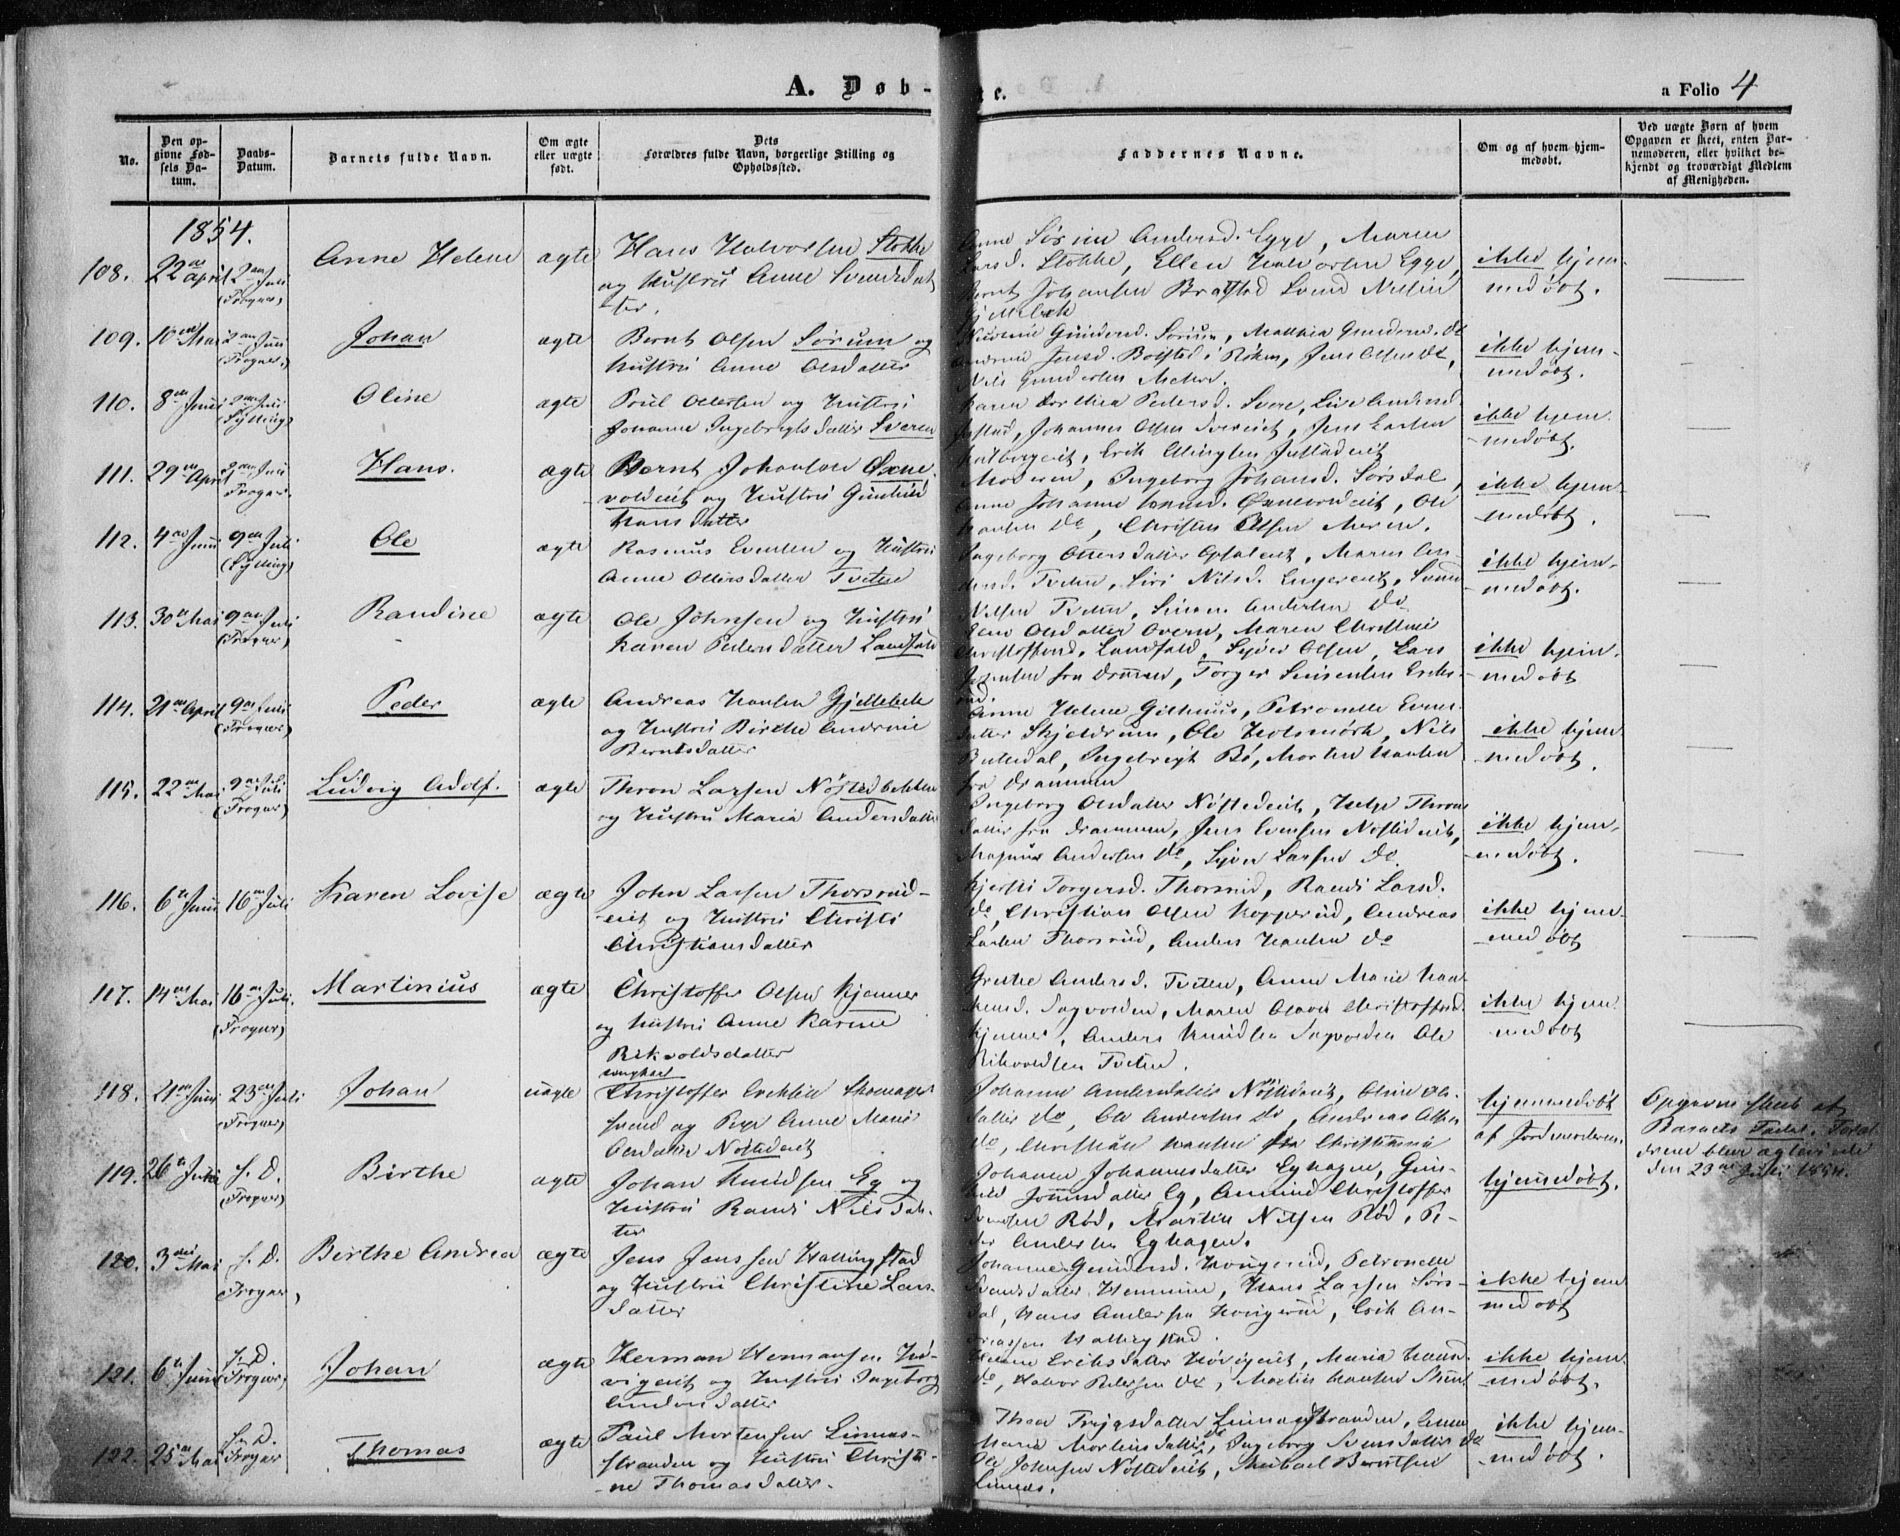 A. Døb-
te.
a Folio 4
No.
Den op-
givne Fød-
sels Da-
tum.
Daabs-
Datum.
Barnets fulde Navn.
Om ægte
eller uægte
født.
Dets
Forældres fulde Navn, borgerlige Stilling og
Opholdssted.
Faddernes Navne.
Om og af hvem hjem-
medøbt.
Ved uægte Børn af hvem
Opgaven er skeet, enten Bar-
nemoderen, eller hvilket be-
kjendt og troværdigt Medlem
af Menigheden.
1854.
108. 22de April 2den Juli (Frogner) Anne Helene ægte
Hans Halvorsen Stokke
og Hustru Anne Svendsdat
ter.
Anne Sørine Andersd. Egge, Maren
Larsd. Stokke, Ellen Halvorsen Egge,
Bernt Johansen Svend Nilsen
Gjellebek
ikke hjem-
medøbt.
109. 10de Mai 2den Juli (Frogner) Johan ægte
Bernt Olsen Sørum og
Hustru Anne Olsdatter
Gundersd. Sørum, Mathia Gundersd. do
Jensd. i Røken, Jens Olsen do,
Nils Gundersen
ikke hjem-
medøbt.
110. 8de Juni 2den Juli (Sylling) Oline ægte
Poul Ottersen og Hustru
Johanne Ingebrigtsdatter Sveren
Karen Dorthea Pedersd. Svere, Live Andersd.
Justad, Johannes Olsen Svereiet, Jens Larsen
Erik Justadeiet
ikke hjem-
medøbt.
111. 29de April 2den Juli Frogner. Hans. ægte
Bernt Johansen Oxne-
voldeiet og Hustru Gunhild
Hansdatter
Moderen, Ingeborg Johansd. Sørsdal,
Anne Johanne Oxnevoldeiet, Ole
Hansen do, Christen Olsen Meren.
ikke hjem-
medøbt.
112. 4de Juni 9de Juli (Sylling) Ole ægte
Rasmus Evensen og Hustru
Anne Ottersdatter Tveten
Ingeborg Ottersdatter Opsaleiet, Maren An-
dersd. Tveten, Siri Nilsd. Engereiet, Svend
Nilsen Tveten, Simen Andersen do
ikke hjem-
medøbt.
113. 30te Mai 9de Juli (Frogner) Randine ægte
Ole Johnsen og Hustru
Karen Pedersdatter Landfald
Olsdatter Overn, Maren Christine
Christoffersd. Landfald, Syver Olsen, Lars
Jensen fra Drammen, Torger Simensen Eriks-
rud
ikke hjem-
medøbt
114. 21de April 9de Juli (Frogner) Peder ægte
Andreas Hansen Gjellebek
og Hustru Birthe Andrine
Berntsdatter
Anne Helene Gilhuus, Petronelle Evens-
datter Skjeldrum, Ole Holsmørk, Nils
Ingebrigt Bø, Morten Hansen
fra Drammen
ikke hjem
medøbt.
115. 22de Mai 9de Juli (Frogner) Ludvig Adolf. ægte
Thron Larsen Nøstedbakken
og Hustru Maria Andersdatter
Ingeborg Olsdatter Nøstedeiet, Helge Throns
datter fra Drammen, Jens Evensen Nøstedeiet,
Magnus Andersen do, Syver Larsen do.
ikke hjem-
medøbt.
116. 6te Juni 16de Juli Karen Lovise ægte
John Larsen Thorsrud-
eiet og Hustru Christi
Christiansdatter
Kjersti Torgersd. Thorsrud, Randi Larsd.
do, Christian Olsen Kopperud, Andreas
Larsen Thorsrud, Anders Hansen do
ikke hjem-
medøbt
117. 14de Mai 16de Juli. (Frogner) Martinius ægte
Christoffer Olsen Kjenner
og Hustru Anne Karine
Rikvoldsdatter
Grethe Andersd. Tveten, Anne Marie Han-
sensd. Sagvolden, Maren Olava Christoffersd.
Kjenner, Anders Knudsen Sagvolden Ole
Rikvoldsen Tveten.
ikke hjem
medøbt
118. 4de Juni 23de Juli (Frogner) Johan uægte
ungkarl
Christoffer Skomager-
svend og Pige Anne Marie
Olsdatter Nøstedeiet
Johanne Andersdatter Nøstedeiet, Oline Ols-
datter do, Ole Andersen do, Andreas Olsen
do, Christian Hansen fra Christiania
hjemmedøbt
af Jordmoderen.
Opgaven skeet af
Barnets Fader. Foræl-
drene bleve ægteviede
den 23de Juli 1854.
119. 26te Juni s. D. (Frogner) Birthe ægte
Johan Knudsen Eg og
Hustru Randi Nilsdat-
ter
Johanne Johannesdatter Eghagen, Gun-
hild datter Eg, Amund Christoffer
Svensen Rød, Martin Nilsen Rød, Pe-
der Andersen Eghagen.
hjemmedøbt.
120. 3die Mai s. D. Frogner, Birthe Andrea ægte
Jens Jensen Hallingstad
og Hustru Christine Lars-
datter
Johanne Gundersd. Hougerud, Petronelle
Svendsdatter Hennum, Hans Larsen Sørs-
dal, Hans Andersen Hougerud, Erik An-
dreassen Hallingstad.
ikke hjem
medøbt
121. 6te Juni s. D. (Frogner) Johan ægte
Herman Hermansen Hø-
vigeiet og Hustru Ingeborg
Andersdatter
Helene Eriksdatter Høvigeiet, Maria Hansd.
do, Halvor Pedersen do, Martin Hansen
ikke hjem-
medøbt.
122. 25de Mai s. D. Frogner Thomas ægte
Paul Mortensen Linnes-
stranden og Hustru Christi-
ne Thomasdatter.
Thea Trygsdatter Linnesstranden, Anne
Marie Mortensdatter do, Ingeborg Svensdatter do
Ole Johnsen Nøstedeiet, Michael Berntsen
Linnes.
ikke hjem-
medøbt.